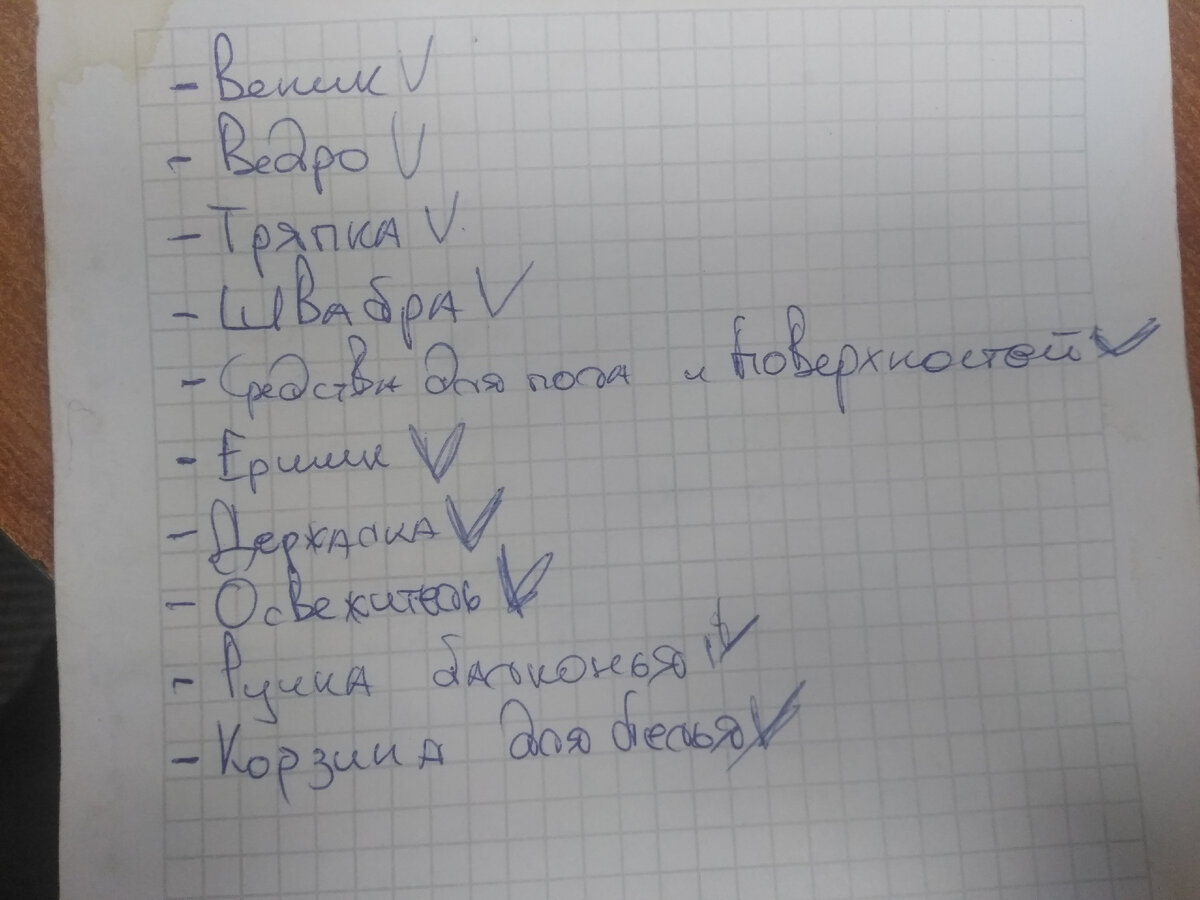 - Веник V
- Ведро V
- Тряпка V
- Швабра V
- Средства для пола и поверхностей V
- Ершик V
- Держалка V
- Освежитель V
- Ручка балконья V
- Корзина для белья V